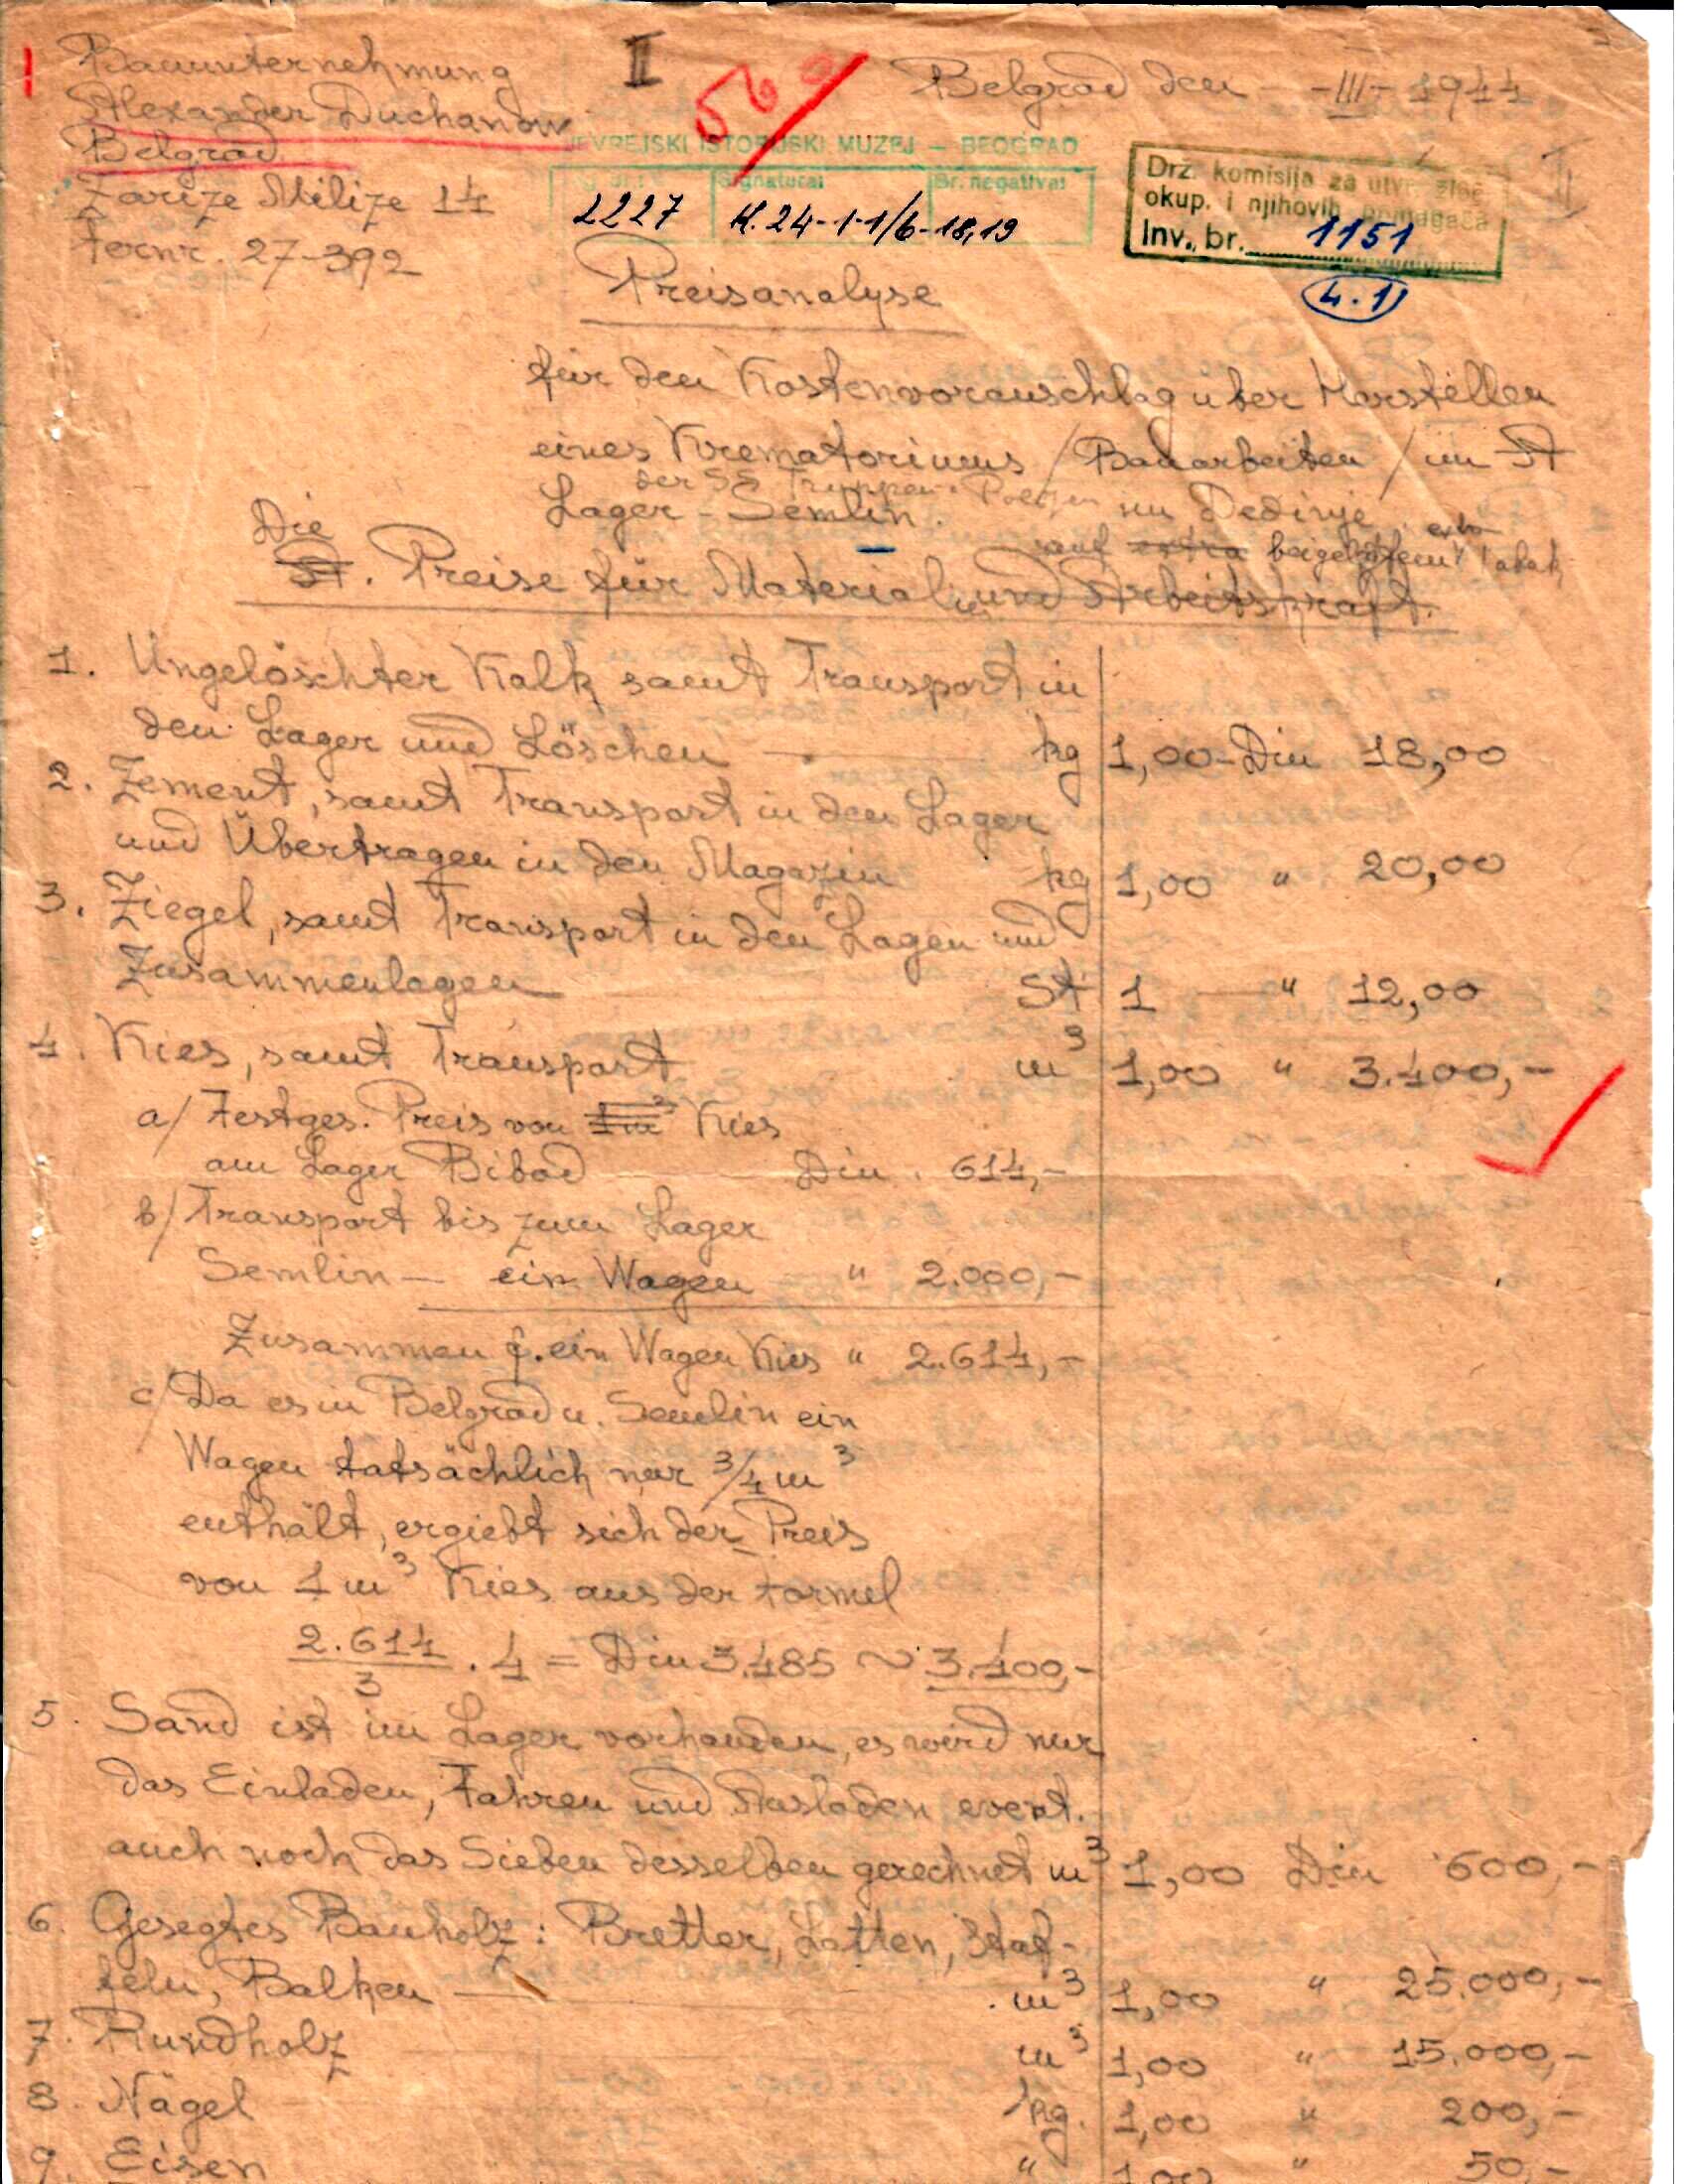 Bauunternehmung
Alexander Duchanow
Belgrad
Zarize Milize 14
Fernr. 27-392
II
560
Belgrad den - -III- 1944
JEVREJSKI ISTORIJSKI MUZEJ – BEOGRAD
Signatura: Br. negativa:
2227 K. 24-1-1/6-18,19
Drž. komisija za utvr. zloč.
okup. i njihovih pomagača
Inv. br. 1151
4.1)
Preisanalyse
für den Kostenvorauschlag über Herstellen
eines Krematoriums / Bauarbeiten / im St
der SS Truppen
Lager - Semlin. im Dedinje
Die
samt extra beigel
St. Preise für Material und Arbeitskraft.
1. Ungelöschter Kalk samt Transport in
den Lager und Löschen kg 1,00 - Din 18,00
2. Zement, samt Transport in den Lager
und Übertragen in den Magazin kg 1,00 " 20,00
3. Ziegel, samt Transport in den Lagen und
Zusammenlagen St 1 — " 12,00
4. Kies, samt Transport m³ 1,00 " 3.400,-
a/ Festges. Preis von 1m³ Kies
am Lager Bibod Din. 614,-
b/ Transport bis zum Lager
Semlin — ein Wagen " 2.000,-
Zusammen f. ein Wagen Kies " 2.614,-
c/ Da es in Belgrad u. Semlin ein
Wagen tatsächlich nur 3/4 m³
enthält, ergiebt sich der Preis
von 1 m³ Kies aus der Formel
2.614/3 . 4 = Din 3.485 ~ 3.400,-
5. Sand ist im Lager vorhanden, es wird nur
das Einladen, Fahren und Ausladen event.
auch noch das Sieben desselben gerechnet m³ 1,00 Din 600,-
6. Gesegtes Bauholz: Bretter, Latten, Staf-
feln, Balken — m³ 1,00 " 25.000,-
7. Rundholz m³ 1,00 " 15.000,-
8. Nägel kg. 1,00 " 200,-
9. Eisen " 1,00 " 50,-